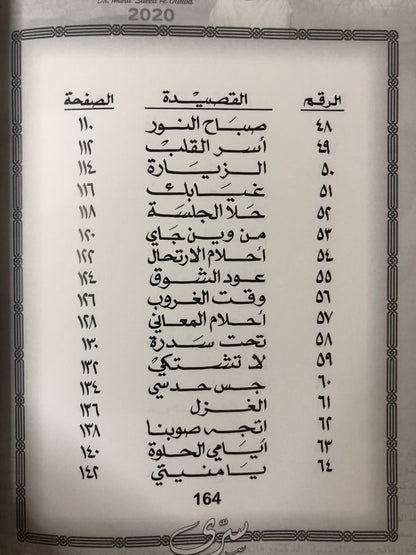 2020
الرقم القصيدة الصفحة
٤٨ صباح النور ١١٠
٤٩ أسر القلب ١١٢
٥٠ الزيارة ١١٤
٥١ غيابك ١١٦
٥٢ حلا الجلسة ١١٨
٥٣ من وين جاي ١٢٠
٥٤ أحلام الارتحال ١٢٢
٥٥ عود الشوق ١٢٤
٥٦ وقت الغروب ١٢٦
٥٧ أحلام المعاني ١٢٨
٥٨ تحت سدرة ١٣٠
٥٩ لا تشتكي ١٣٢
٦٠ جس حدسي ١٣٤
٦١ الغزل ١٣٦
٦٢ اتجه صوبنا ١٣٨
٦٣ أيامي الحلوة ١٤٠
٦٤ يا منيتي ١٤٢
164